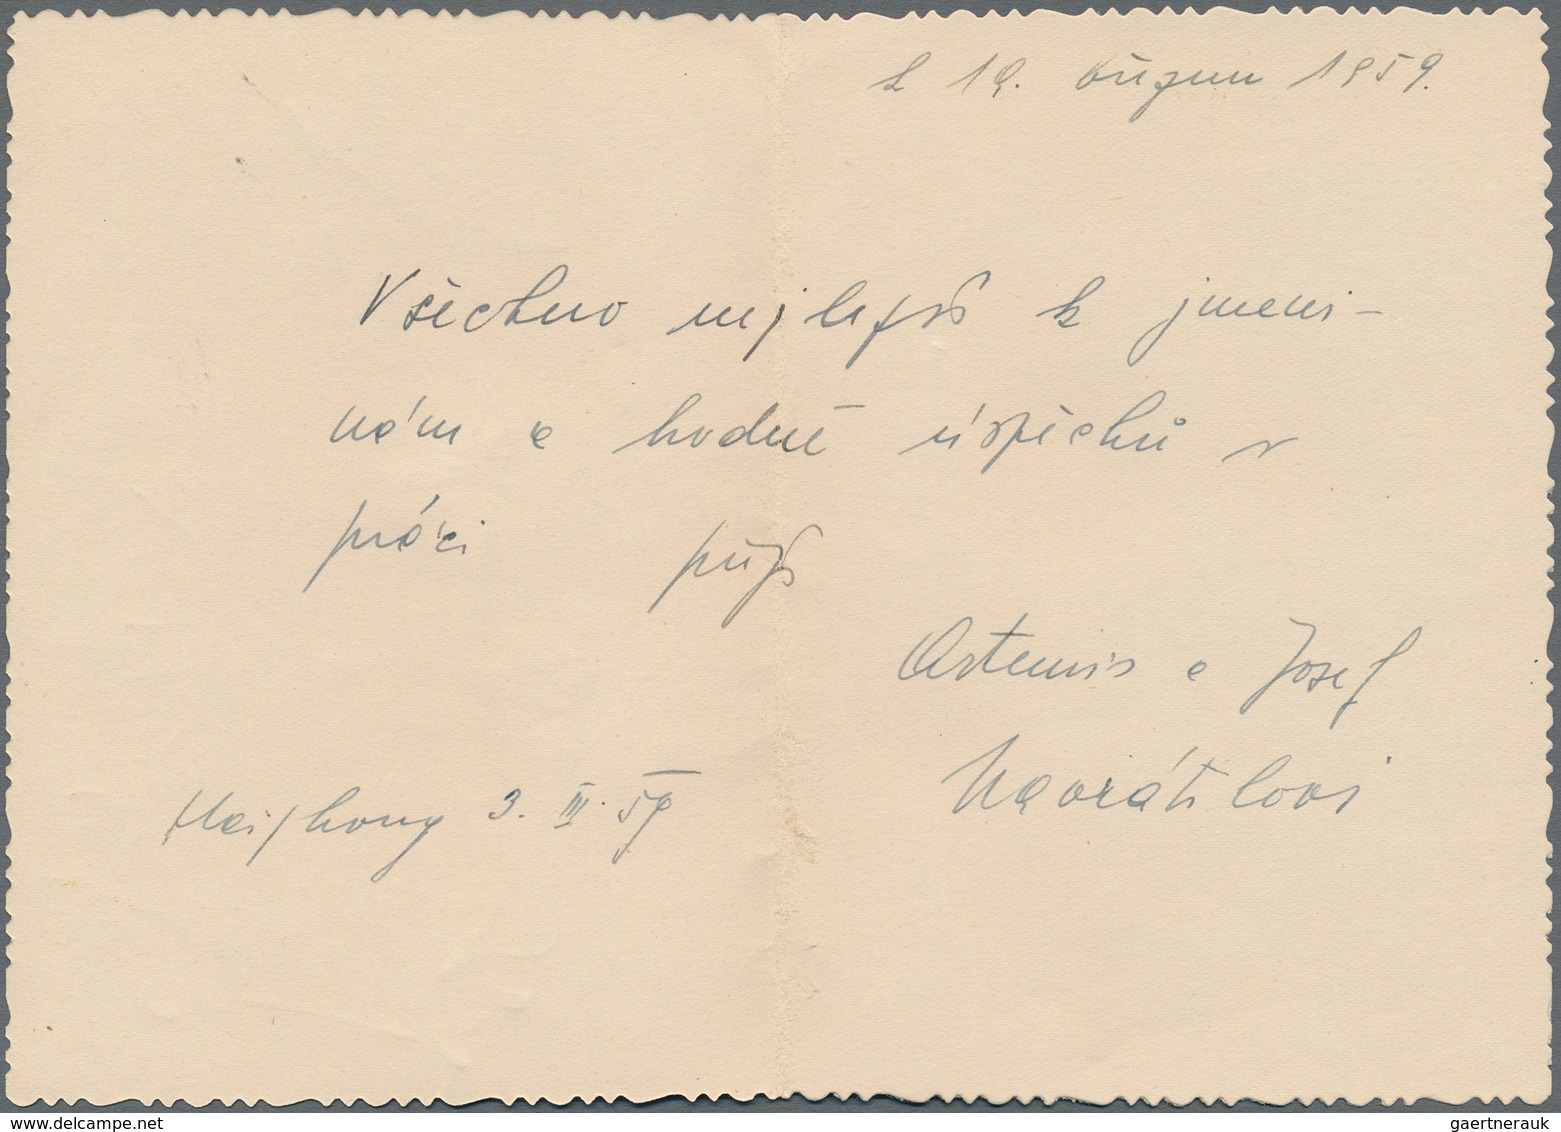 k 19. březnu 1959.
Všechno nejlepší k jmeni-
nám a hodně úspěchů v
práci přejí
Artemis a Josef
Navrátilovi
Haiphong 3. III. 59
www.delcampe.net
gaertnerauk